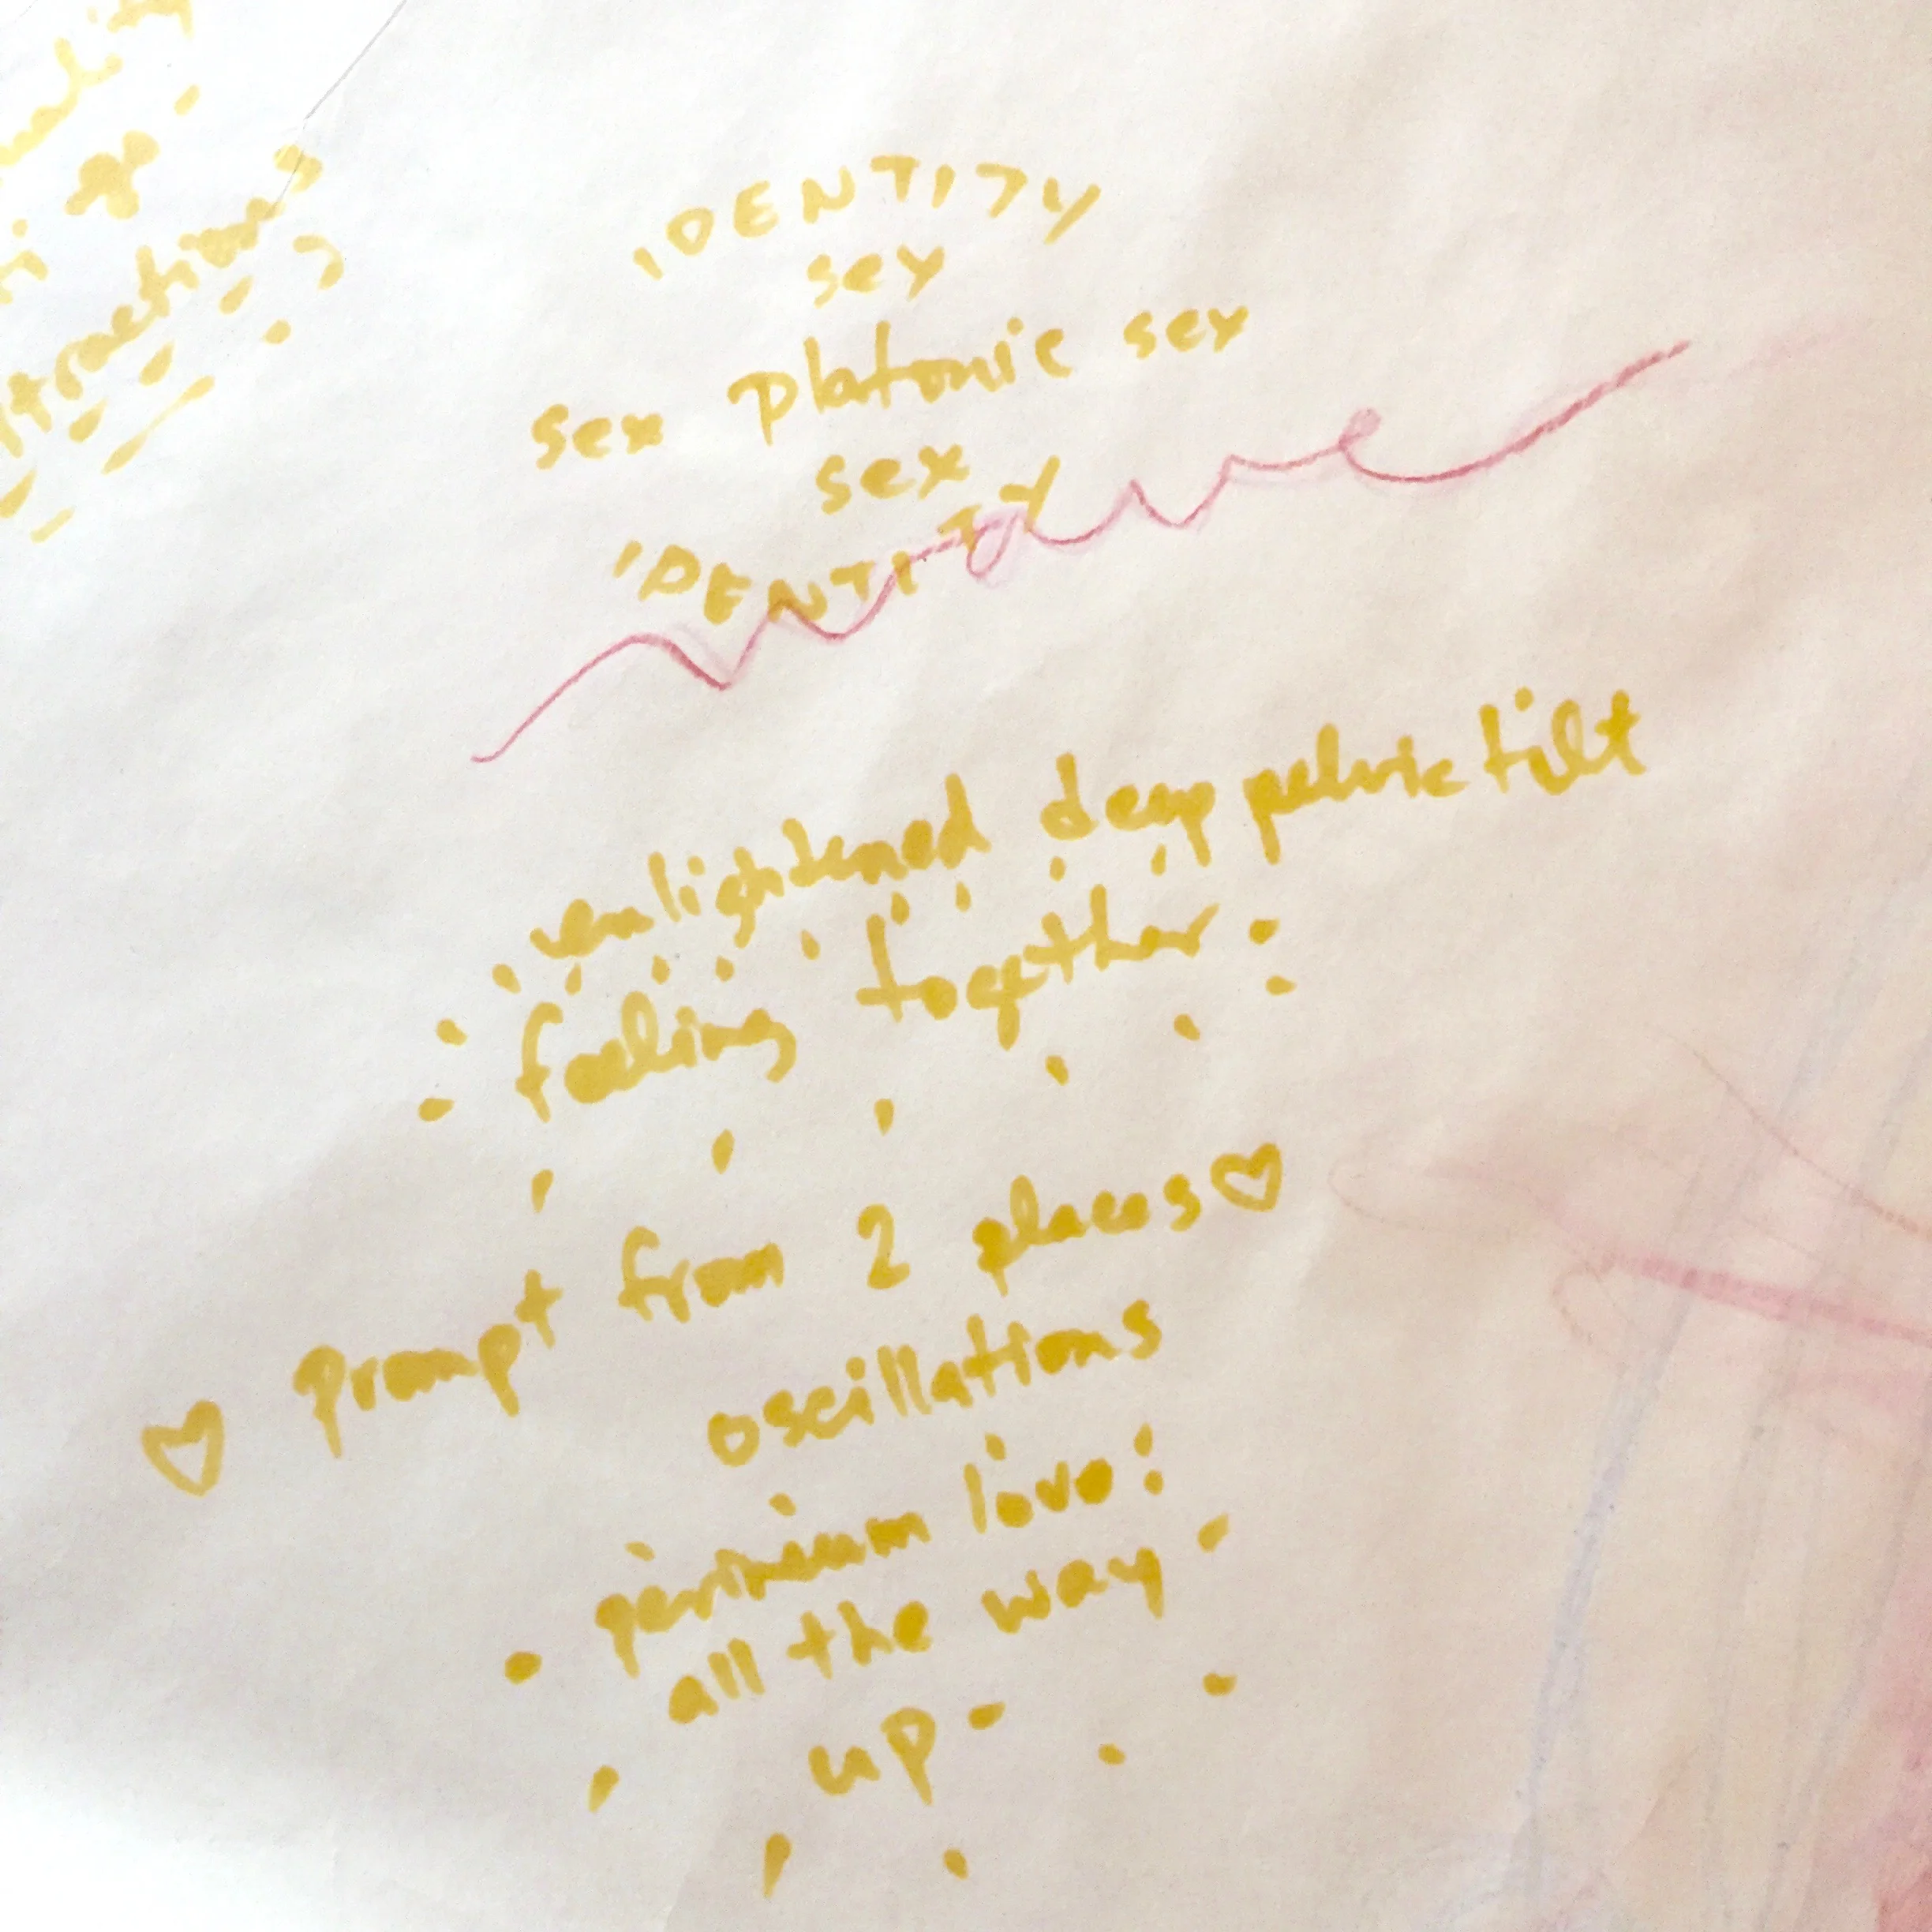 IDENTITY
sex
sex platonic sex
sex
IDENTITY
wave
enlightened deep pelvic tilt
feeling together
prompt from 2 places
oscillations
perineum love
all the way
up